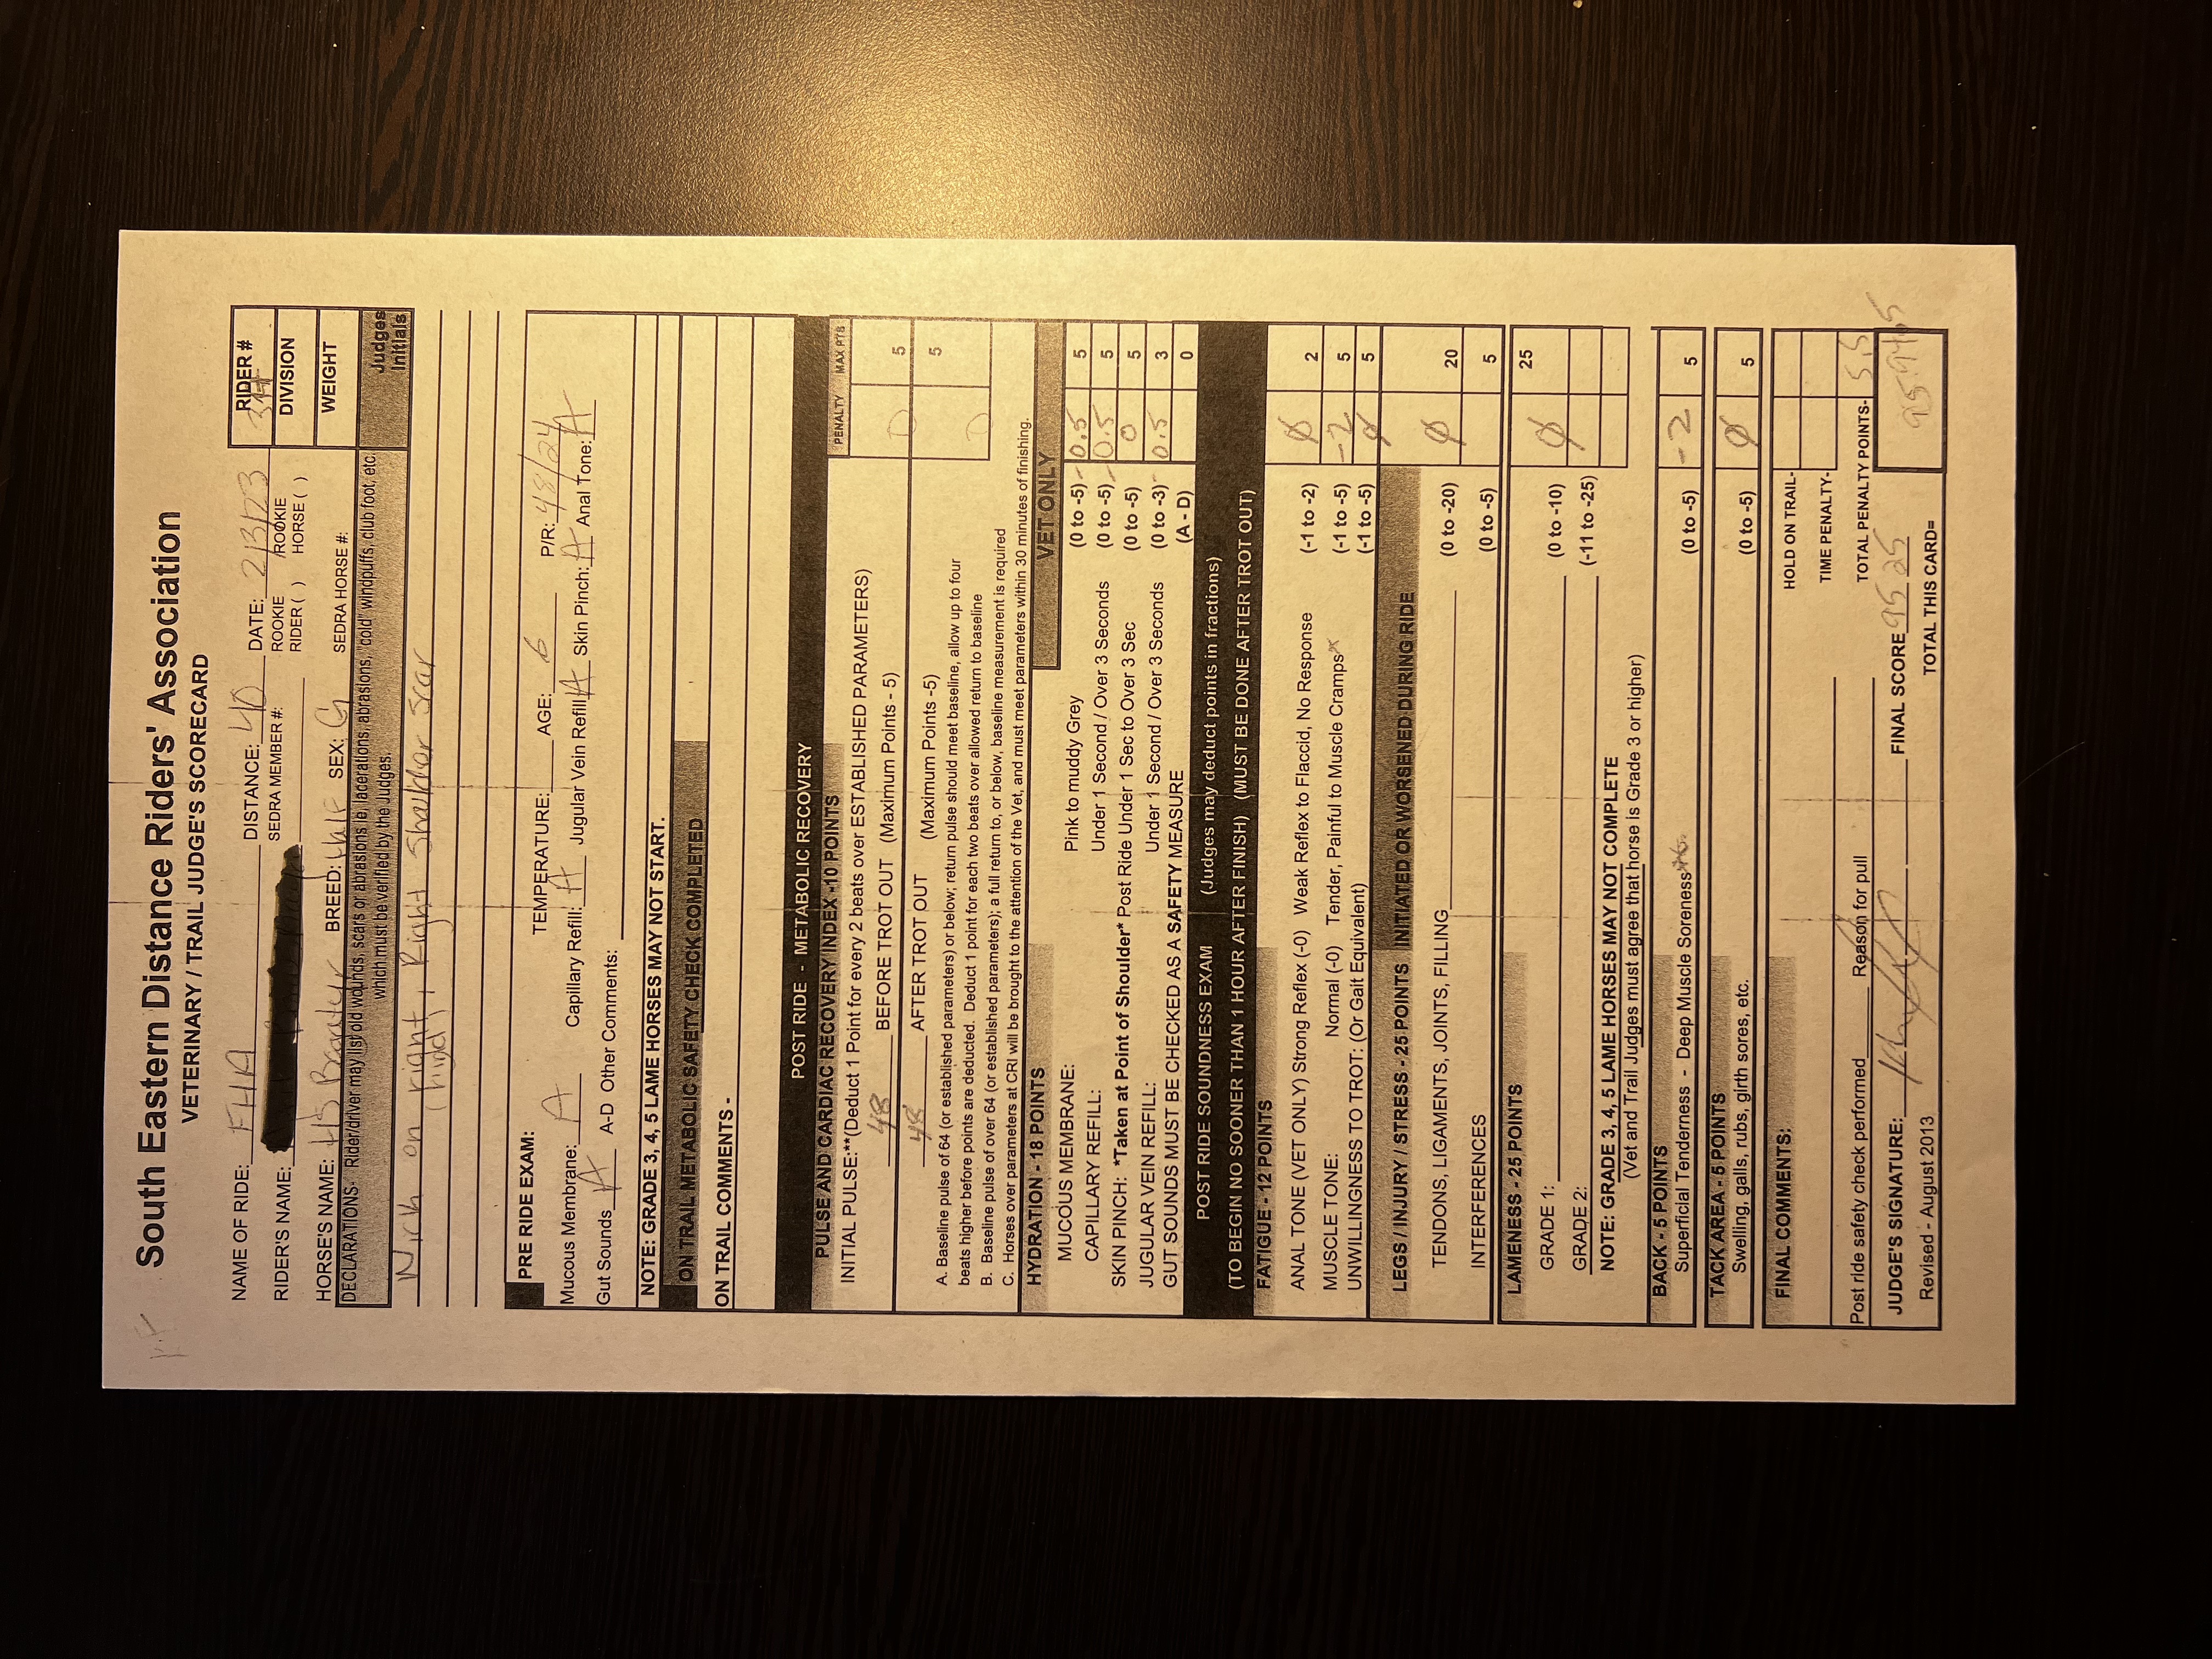 South Eastern Distance Riders' Association
VETERINARY / TRAIL JUDGE'S SCORECARD
NAME OF RIDE: FHA DISTANCE: 40 DATE: 2/3/23 RIDER #
RIDER'S NAME: SEDRA MEMBER #: ROOKIE RIDER ( ) /ROOKIE HORSE ( ) DIVISION
HORSE'S NAME: HS Bogatyr BREED: Half SEX: G SEDRA HORSE #: WEIGHT
DECLARATIONS- Rider/driver may list old wounds, scars or abrasions ie, lacerations, abrasions, "cold" windpuffs, club foot, etc.
which must be verified by the Judges. Judges Initials
Nick on right, Right Shoulder Scar
(hind)
PRE RIDE EXAM:
TEMPERATURE: AGE: 6 P/R: 48/24
Mucous Membrane: A Capillary Refill: A Jugular Vein Refill A Skin Pinch: A Anal Tone: A
Gut Sounds A A-D Other Comments:
NOTE: GRADE 3, 4, 5 LAME HORSES MAY NOT START.
ON TRAIL METABOLIC SAFETY CHECK COMPLETED
ON TRAIL COMMENTS -
POST RIDE - METABOLIC RECOVERY
PULSE AND CARDIAC RECOVERY INDEX -10 POINTS PENALTY MAX PTS
INITIAL PULSE:**(Deduct 1 Point for every 2 beats over ESTABLISHED PARAMETERS)
48 BEFORE TROT OUT (Maximum Points - 5) 0 5
48 AFTER TROT OUT (Maximum Points -5) 5
A. Baseline pulse of 64 (or established parameters) or below; return pulse should meet baseline, allow up to four
beats higher before points are deducted. Deduct 1 point for each two beats over allowed return to baseline 0
B. Baseline pulse of over 64 (or established parameters); a full return to, or below, baseline measurement is required
C. Horses over parameters at CRI will be brought to the attention of the Vet, and must meet parameters within 30 minutes of finishing.
HYDRATION - 18 POINTS VET ONLY
MUCOUS MEMBRANE: Pink to muddy Grey (0 to -5) -0.5 5
CAPILLARY REFILL: Under 1 Second / Over 3 Seconds (0 to -5) -0.5 5
SKIN PINCH: *Taken at Point of Shoulder* Post Ride Under 1 Sec to Over 3 Sec (0 to -5) 0 5
JUGULAR VEIN REFILL: Under 1 Second / Over 3 Seconds (0 to -3) -0.5 3
GUT SOUNDS MUST BE CHECKED AS A SAFETY MEASURE (A - D) 0
POST RIDE SOUNDNESS EXAM (Judges may deduct points in fractions)
(TO BEGIN NO SOONER THAN 1 HOUR AFTER FINISH) (MUST BE DONE AFTER TROT OUT)
FATIGUE - 12 POINTS
ANAL TONE (VET ONLY) Strong Reflex (-0) Weak Reflex to Flaccid, No Response (-1 to -2) Ø 2
MUSCLE TONE: Normal (-0) Tender, Painful to Muscle Cramps (-1 to -5) -2 5
UNWILLINGNESS TO TROT: (Or Gait Equivalent) (-1 to -5) Ø 5
LEGS / INJURY / STRESS - 25 POINTS INITIATED OR WORSENED DURING RIDE
TENDONS, LIGAMENTS, JOINTS, FILLING (0 to -20) Ø 20
INTERFERENCES (0 to -5) 5
LAMENESS - 25 POINTS 25
GRADE 1: (0 to -10) Ø
GRADE 2: (-11 to -25)
NOTE: GRADE 3, 4, 5 LAME HORSES MAY NOT COMPLETE
(Vet and Trail Judges must agree that horse is Grade 3 or higher)
BACK - 5 POINTS
Superficial Tenderness - Deep Muscle Soreness (0 to -5) -2 5
TACK AREA - 5 POINTS
Swelling, galls, rubs, girth sores, etc. (0 to -5) Ø 5
FINAL COMMENTS: HOLD ON TRAIL-
TIME PENALTY-
Post ride safety check performed Reason for pull TOTAL PENALTY POINTS- 5.5
JUDGE'S SIGNATURE: FINAL SCORE 95 25
Revised - August 2013 TOTAL THIS CARD=